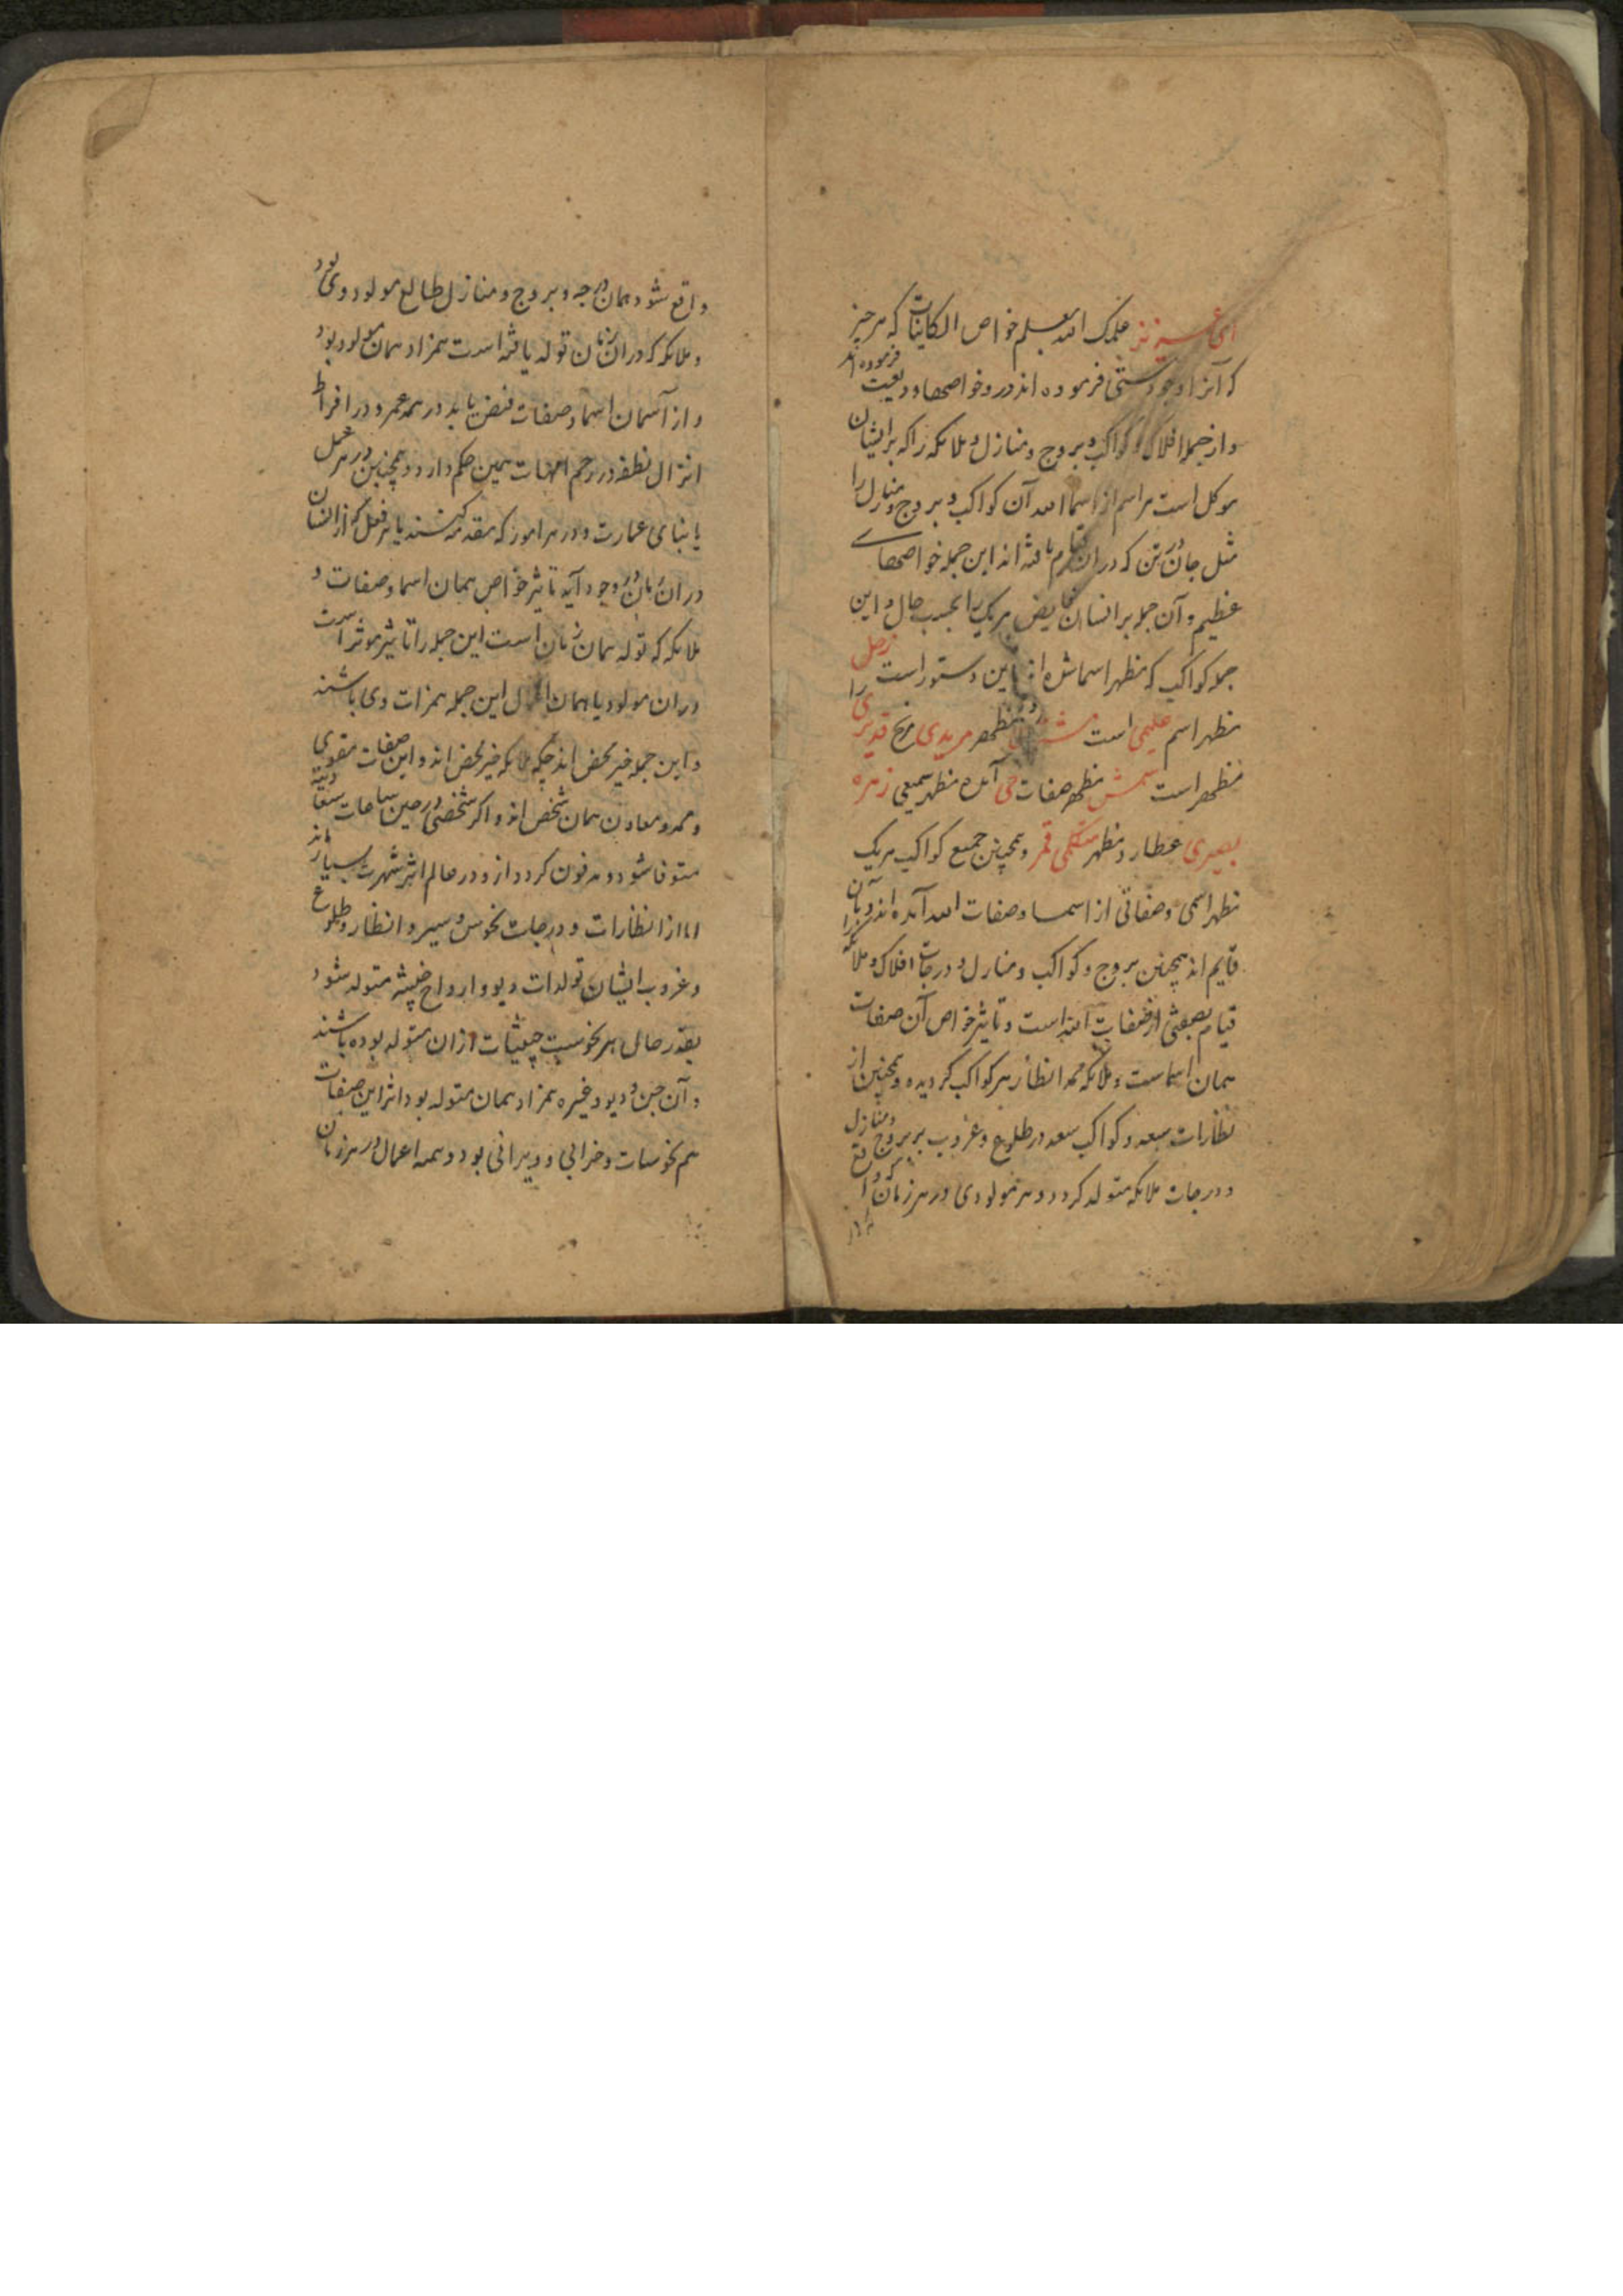 ای عزیز علمک الله بعلم خواص الکاینات که هر چیز
که آنرا وجود هستی فرموده اند در و خواصها ودیعت فرموده اند
و از جمله افلاک و کواکب و بروج و منازل و ملائکه را که بر ایشان
موکل است هر اسم از اسما الله آن کواکب و بروج و منازل را
مثل جان در تن که در ان قیام یافته اند این جمله خواصهای
عظیم و آن جمله بر انسان فایض هر یک را بحسب حال و این
جمله کواکب که مظهر اسما شده اند باین دستور است زحل را
مظهر اسم علیمی است مشتری مظهر مریدی مریخ قدیری
مظهر است شمس مظهر صفات حی آمده مظهر سمیعی زهره
بصیری عطارد مظهر متکلمی قمر و همچنین جمیع کواکب هر یک
مظهر اسمی و صفاتی از اسما و صفات الله آمده اند و بآن
قایم اند همچنین بروج و کواکب و منازل و درجات افلاک و ملائکه را
قیام بصفتی از صفات الله است و تاثیر خواص آن صفات
همان اسماست و ملائکه همه انظار هر کواکب گردیده و همچنین از
نظارات سبعه و کواکب سعد در طلوع و غروب بر بروج و منازل
و درجات ملائکه متولد گردد و هر مولودی در هر زمان که واقع
واقع شود همان درجه و بروج و منازل طالع مولود وی بود
و ملائکه که در ان زمان تولد یافته است همزاد همان مولود بود
و از آسمان اسما و صفات فیض یابد در همه عمر و در افراط
انزال نطفه در رحم امهات همین حکم دارد و همچنین در هر عمل
یا بنای عمارت و در هر امور که مقدمه کنند یا هر فعل که از انسان
در ان زمان در وجود آید تاثیر خواص همان اسما و صفات و
ملائکه که تولد همان زمان است این جمله را تاثیر موثر است
در ان مولود یا همان اعمال این جمله همزات وی باشند
و این جمله خیر محض اند چنکه ملائکه خیر محض اند و این صفات مقوی
و ممد و معاون همان شخص اند و اگر شخصی در حین ساعات
متوفا شود و مدفون گردد از و در عالم اثر شهرت بسیار ماند
اما از انظارات و درجات نحوس و سیر و انظار و طلوع
و غروب ایشان تولدات دیو و ارواح خبیثه متولد شود
بقدر حال هر نحوست خبیثات از ان متولد بوده باشند
و آن جن و دیو و غیره همزاد همان متولد بود اثر این صفات
هم نحوسات و خرابی و ویرانی بود و همه اعمال در هر زمان